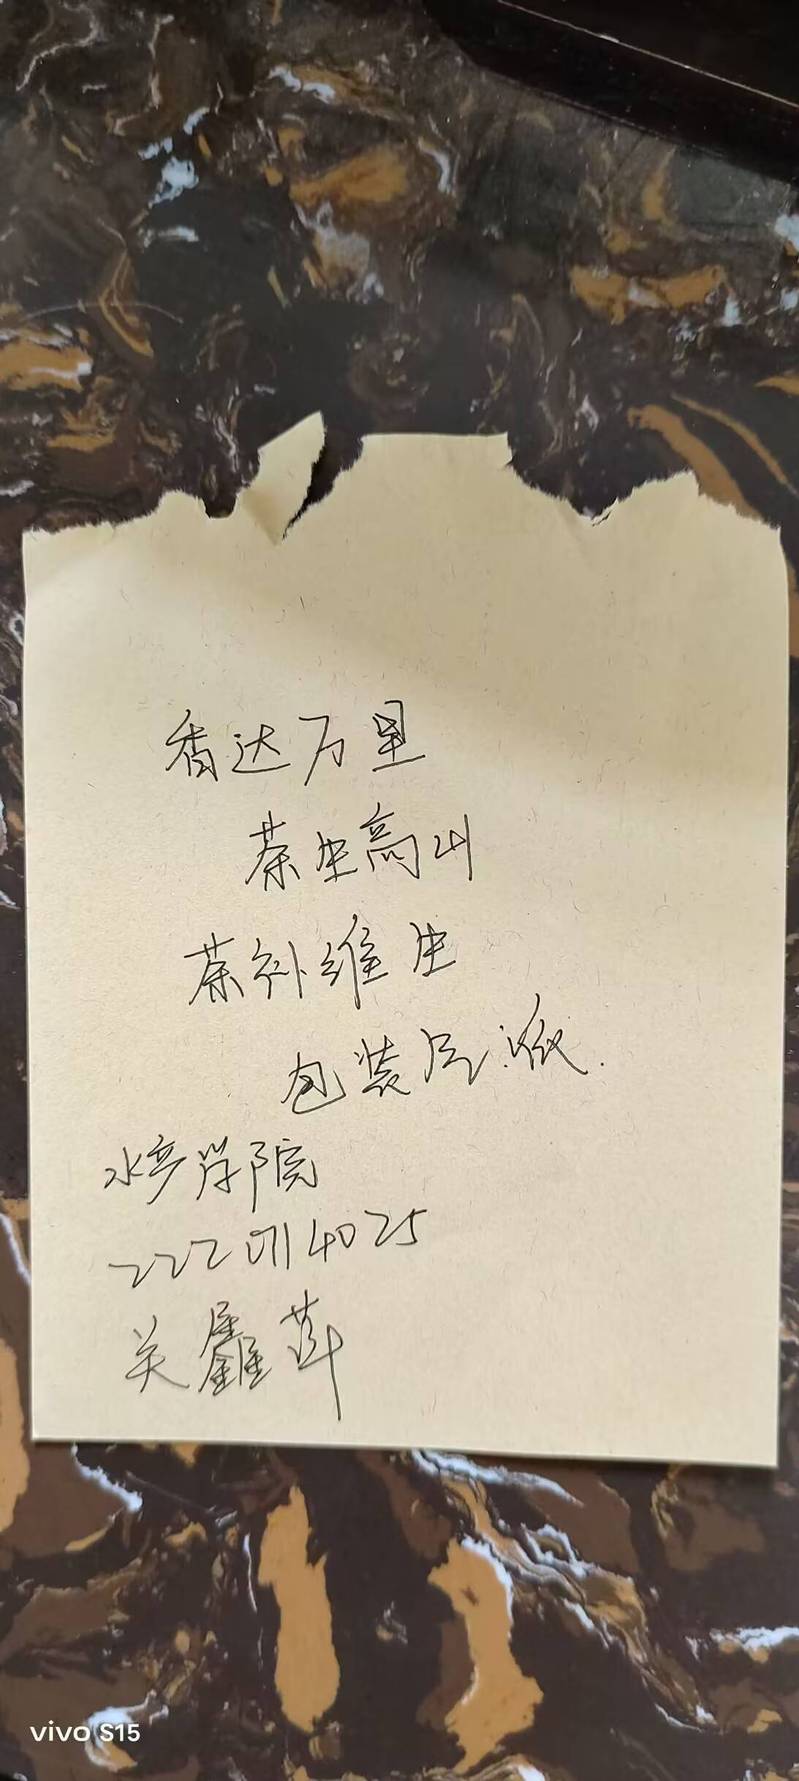 香达万里
茶生高山
茶补维生
包装后派.
水产学院
2220114025
关鑫苹
vivo S15